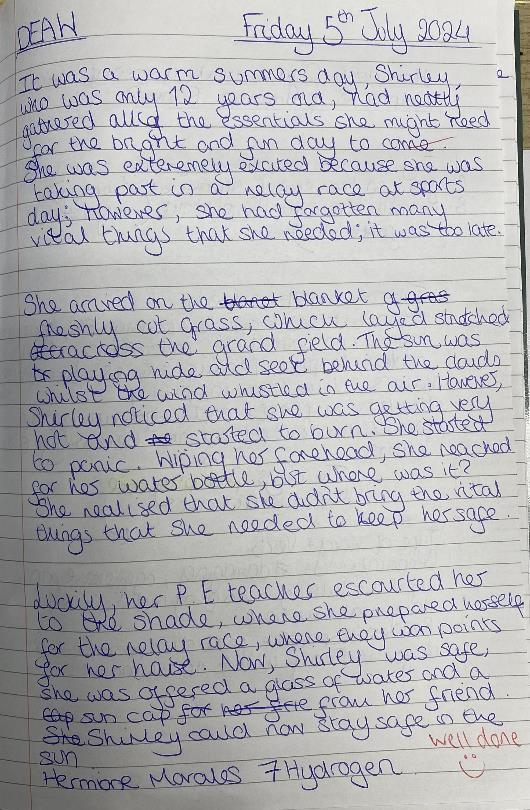 DEAW Friday 5th July 2024
It was a warm summers day, Shirley,
who was only 12 years old, had neatly
gathered all the essentials she might need
for the bright and fun day to come
She was exteremely excited because she was
taking part in a relay race at sports
day; however, she had forgotten many
vital things that she needed; it was too late.
She arrived on the blanket of
freshly cut grass, which layed stretched
across the grand field. The sun was
playing hide and seek behind the clouds
whilst the wind whistled in the air. However,
Shirley noticed that she was getting very
hot and started to burn. She started
to panic. Wiping her forehead, she reached
for her water bottle, but where was it?
She realised that she didn't bring the vital
things that she needed to keep her safe.
Luckily, her P E teacher escourted her
to the shade, where she prepared herself
for the relay race, where they won points
for her house. Now, Shirley was safe,
she was offered a glass of water and a
sun cap from her friend.
Shirley could now stay safe in the
well done
sun
Hermione Morales 7Hydrogen